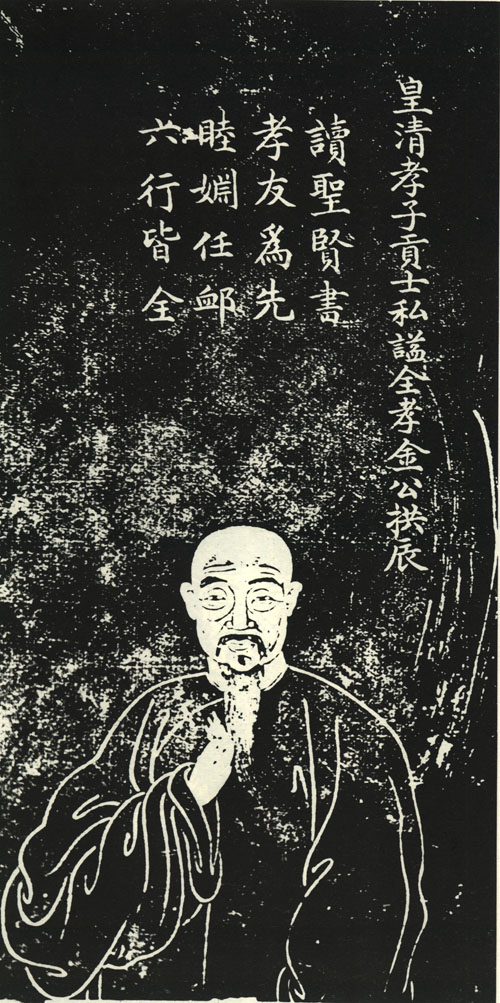 皇清孝子貢士私謚全孝金公拱辰
讀聖賢書
孝友為先
睦婣任卹
六行皆全